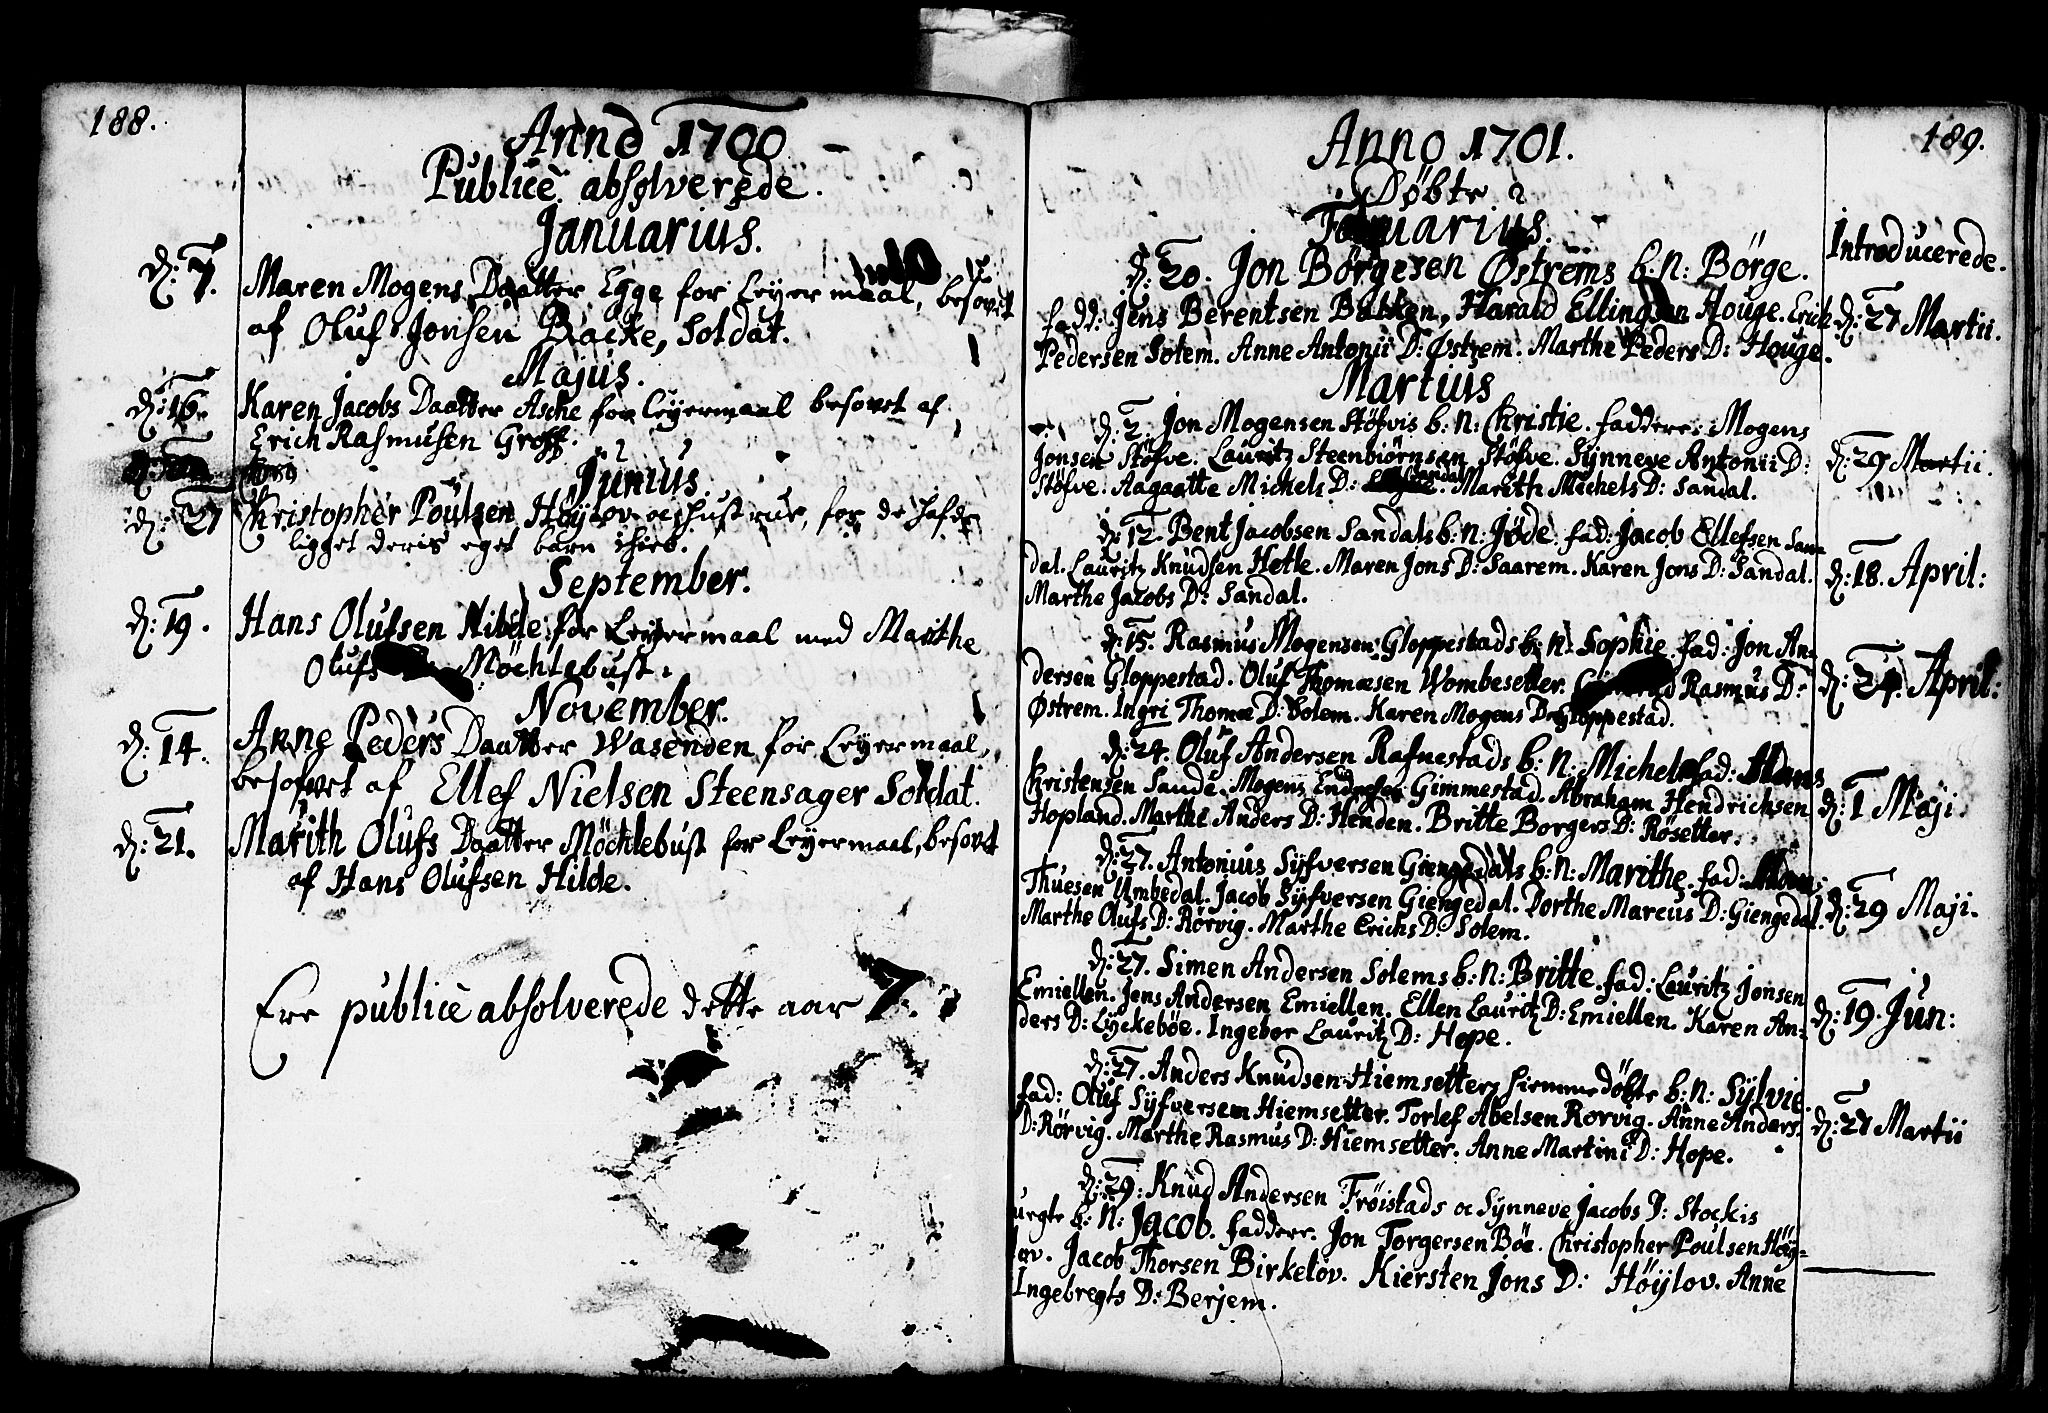 188.
Anno 1700
Publicè absolverede.
Januarius.
d: 7. Maren Mogens Daatter Egge for Leyermaal, besovet
af Oluf Jonsen Backe, Soldat.
Majus.
d: 16. Karen Jacobs Daatter Asche for Leyermaal besovet af
Erich Rasmusen Groff.
Junius
d: 27 Christopher Poulsen Höÿlov oc hustrue, for de hafde
ligget deris eget barn ihiel.
September.
d: 19. Hans Olufsen Hilde for Leyermaal med Marithe
Olufs Möchlebust.
November.
d: 14. Anne Peders Daatter Wasenden for Leyermaal,
besofvet af Ellef Nielsen Steensager Soldat.
d: 21. Marith Olufs Daatter Möchlebust for Leyermaal, besovet
af Hans Olufsen Hilde.
Ere publicè absolverede dette aar 7.
189.
Anno 1701.
Døbte
Januarius.
Introducerede.
d: 20. Jon Börgesen Østrems b: N: Börge.
fadd: Jens Berentsen Balken, Harald Ellingsen Houge. Erich
Pedersen Solem. Anne Antonii D: Østrem. Marthe Peders D: Houge.
d: 27 Martii.
Martius
d: 2. Jon Mogensen Støfvis b: N: Christie. faddere: Mogens
Jonsen Støfve. Lauritz Steenbiörnsen Støfve. Synneve Antonii D:
Støfve. Aagaatte Michels D: Sandal. Marith Michels D: Sandal.
d: 29 Martii.
d: 12. Bent Jacobsen Sandals b: N: Jøde. fad: Jacob Ellefsen San-
dal. Lauritz Knudsen Hetle. Maren Jons D: Saarem. Karen Jons D: Sandal.
Marthe Jacobs D: Sandal.
d: 18. April:
d: 15. Rasmus Mogensen Gloppestads b: N: Sophie. fad: Jon An-
dersen Gloppestad. Oluf Thomæsen Wombesetter. Rasmus D:
Østrem. Ingri Thomæ D: Solem. Karen Mogens D: Gloppestad.
d: 24. April:
d: 24. Oluf Andersen Rafnestads b: N: Michel. fad: Hans
Christensen Sande. Mogens Endresen Gimmestad. Abraham Hendrichsen
Hopland. Marthe Anders D: Henden. Britte Borgers D: Røsetter.
d: 1 Maji.
d: 27. Antonius Syfversen Giengedals b: N: Marithe. fad:
Thuesen Ümbedal. Jacob Syfversen Giengedal. Dorthe Marcus D: Giengedal.
Marthe Olufs D: Rörvig. Marthe Erichs D: Solem.
d: 29 Maji.
d: 27. Simen Andersen Solems b: N: Britte. fad: Lauritz Jonsen
Emiellen. Jens Andersen Emiellen. Ellen Lauritz D: Emiellen. Karen An-
ders D: Lyckebøe. Ingebor Lauritz D: Hope.
d: 19. Jun:
d: 27. Anders Knudsen Hiemsetters hiemmedöbte b: N: Sÿlvie.
fad: Oluf Syfversen Hiemsetter. Torlef Abelsen Rorvig. Anne Anders
D: Rørvig. Marthe Rasmus D: Hiemsetter. Anne Martini D: Hope.
d: 27 Martii
d: 29. Knud Andersen Frøistads oc Synneve Jacobs D: Stockis
uegte b: N: Jacob. faddere. Jon Torgersen Böe. Christopher Poulsen Höÿ-
lov. Jacob Thorsen Birkelov. Kiersten Jons D: Höÿlov. Anne
Ingebregts D: Berjem.